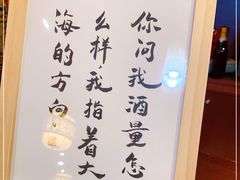 你问我酒量怎
么样,我指着大
海的方向